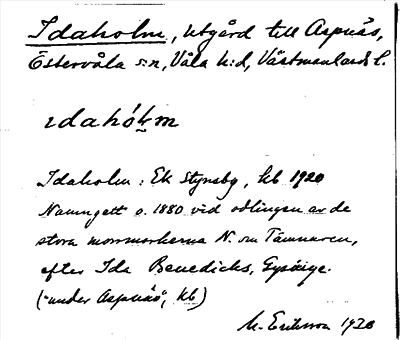 Idaholm, utgård till Aspnäs,
Östervåla s:n, Våla h:d, Västmanlands l.
ıdahól̬m
Idaholm: Ek Stynsby, kb 1920
Namngett o. 1880 vid odlingen av de
stora morrmarkerna N. om Tämnaren,
efter Ida Benedicks, Gysinge.
("under Aspnäs", kb)
M. Eriksson 1920